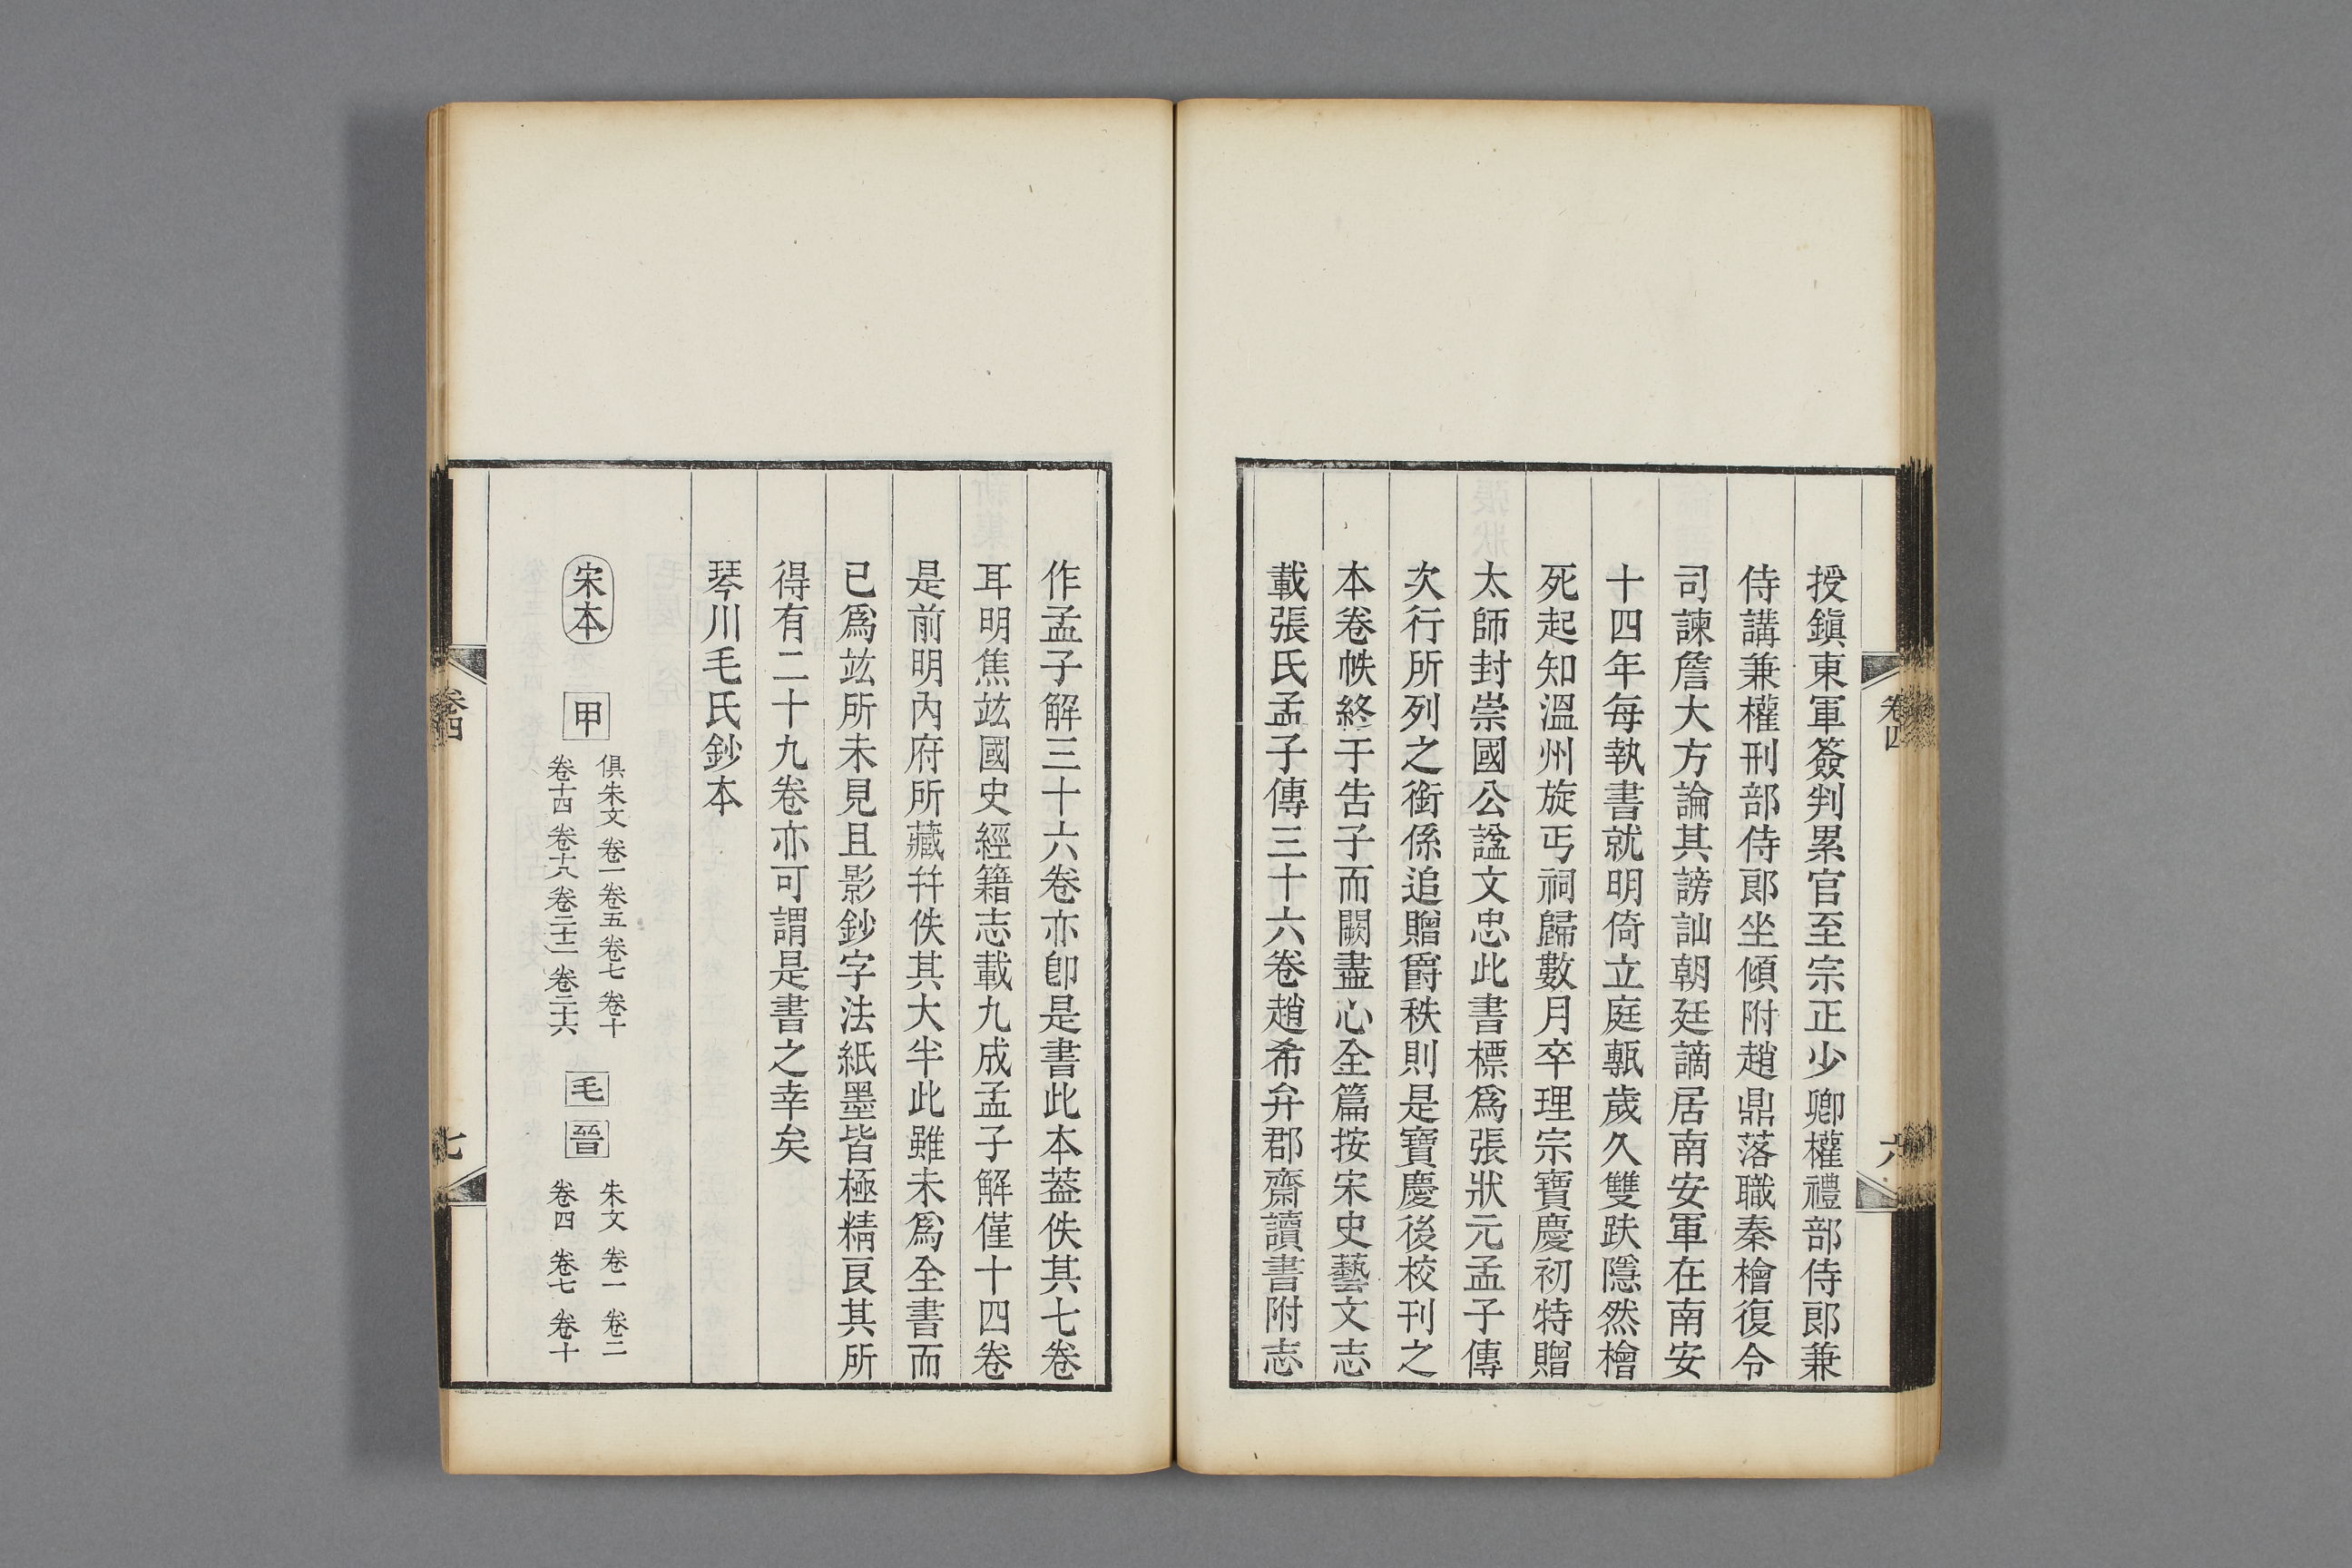 卷四
六
授鎭東軍簽判累官至宗正少卿權禮部侍郎兼
侍講兼權刑部侍郎坐傾附趙鼎落職秦檜復令
司諫詹大方論其謗訕朝廷謫居南安軍在南安
十四年每執書就明倚立庭甎歲久雙趺隱然檜
死起知溫州旋丐祠歸數月卒理宗寶慶初特贈
太師封崇國公諡文忠此書標爲張狀元孟子傳
次行所列之銜係追贈爵秩則是寶慶後校刊之
本卷帙終于告子而闕盡心全篇按宋史藝文志
載張氏孟子傳三十六卷趙希弁郡齋讀書附志
作孟子解三十六卷亦卽是書此本蓋佚其七卷
耳明焦竑國史經籍志載九成孟子解僅十四卷
是前明內府所藏幷佚其大半此雖未爲全書而
已爲竑所未見且影鈔字法紙墨皆極精良其所
得有二十九卷亦可謂是書之幸矣
琴川毛氏鈔本
宋本 甲 俱朱文 卷一 卷五 卷七 卷十
卷十四 卷十八 卷二十二 卷二十六
毛 晉 朱文 卷一 卷二
卷四 卷七 卷十
卷四
七